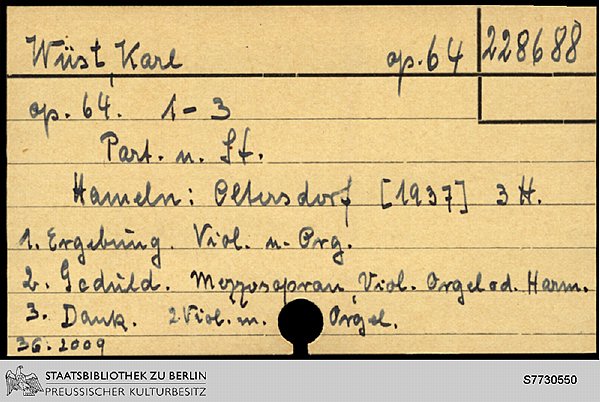 Wüst, Karl op. 64 228688
op. 64. 1-3
Part. u. St.
Hameln: Oltersdorf [1937] 3 H.
1. Ergebung. Viol. u. Org.
2. Geduld. Mezzosopran, Viol. Orgel od. Harm.
3. Dank. 2 Viol. m. Orgel.
36.2009
STAATSBIBLIOTHEK ZU BERLIN
PREUSSISCHER KULTURBESITZ
S7730550